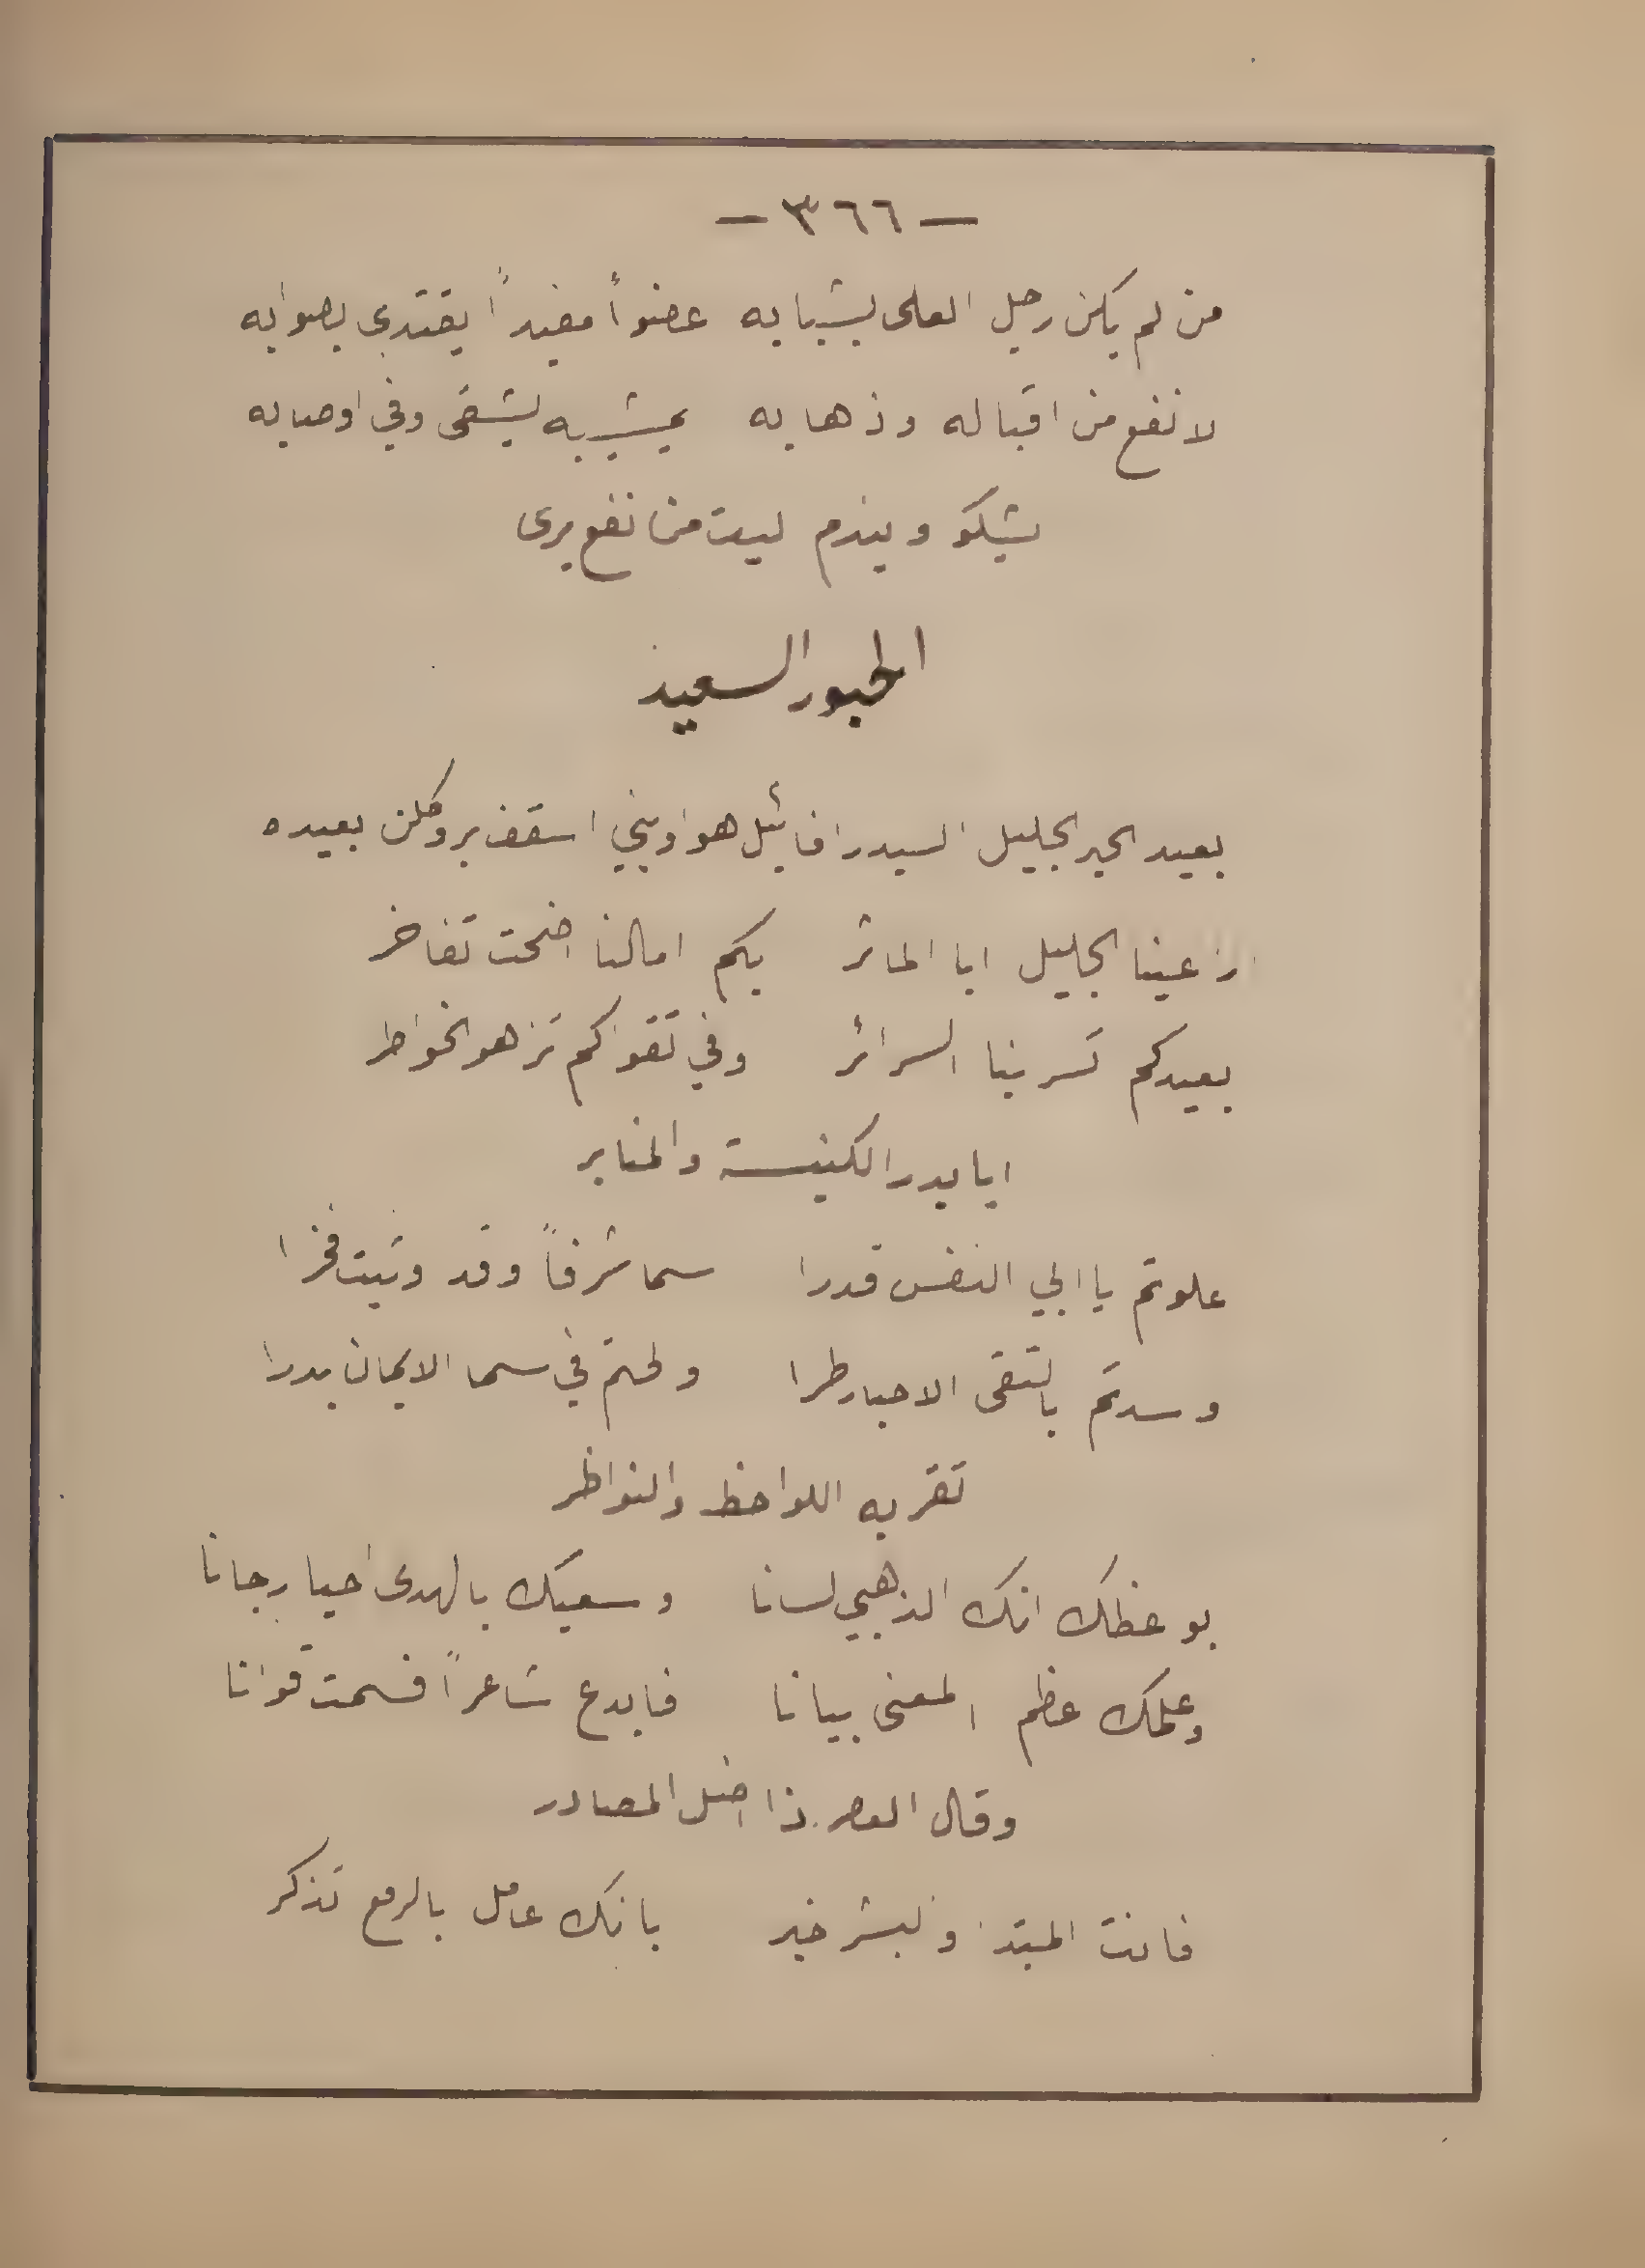 — ٣٦٦ —
من لم يكن رجل العلى بشبابه عضواً مفيداً يقتدى بصوابه
لا نفع من اقباله وذهابه بمشيبه يشقى وفي اوصابه
يشكو ويندم ليت من نفع يرى
الحبور السعيد
بعيد الحبر الجليل السيد رافائيل هواويني اسقف بروكلن بعيده
راعينا الجليل ابا المآثر بكم امالنا اضحت تفاخر
بعيدكم تسر بنا السرائر وفي تقواكم تزهو الخواطر
ايا بدر الكنيسة والمنابر
علوتم يا ابي النفس قدرا سما شرفاً وقد وثبت فخرا
وسدتم بالتقى الاحبار طرا ولحتم في سما الايمان بدرا
تقر به اللواحظ والنواظر
بوعظك انك الذهبي لسانا وسعيك بالهدى احيا رجانا
وعلمك عظم المعنى بيانا فابدع شاعراً فسمت قوانا
وقال العصر ذا اصل المصادر
فانت المبتدا والبشر خبر بانك عامل بالرفع تذكر